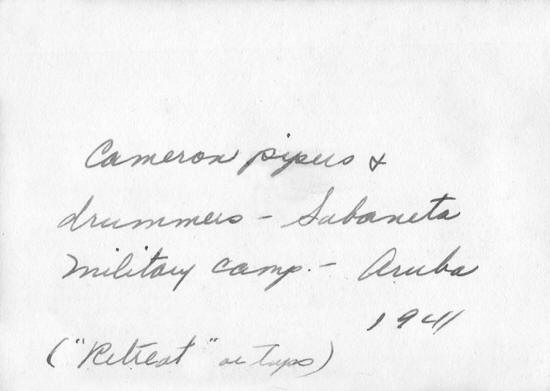 Cameron pipers &
drummers - Sabaneta
Military camp. - Aruba
1941
("Retreat" or taps)